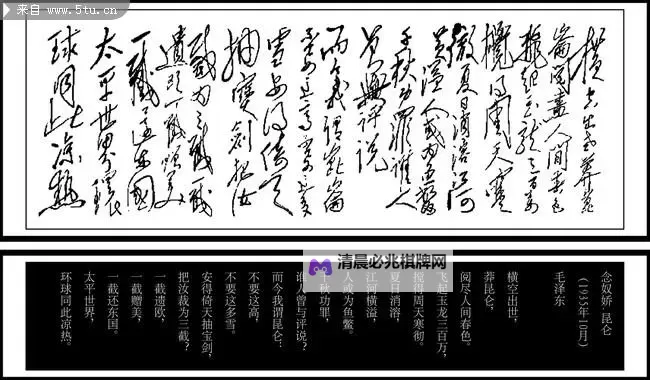 来自 www.5tu.cn
横空出世莽昆
崙阅尽人间春色
飞起玉龙三百万
搅得周天寒
彻夏日消溶江河
横溢人或为鱼鳖
千秋功罪谁人
曾与评说
而今我谓崑崙
不要这高不要这多
雪安得倚天
抽宝剑把汝
裁为三截一截
遗欧一截赠美
一截还东国
太平世界环
球同此凉热
清晨必兆棋牌网
念奴娇·昆仑
(1935年10月)
毛泽东
横空出世，
莽昆仑，
阅尽人间春色。
飞起玉龙三百万，
搅得周天寒彻。
夏日消溶，
江河横溢，
人或为鱼鳖。
千秋功罪，
谁人曾与评说？
而今我谓昆仑：
不要这高，
不要这多雪。
安得倚天抽宝剑，
把汝裁为三截？
一截遗欧，
一截赠美，
一截还东国。
太平世界，
环球同此凉热。